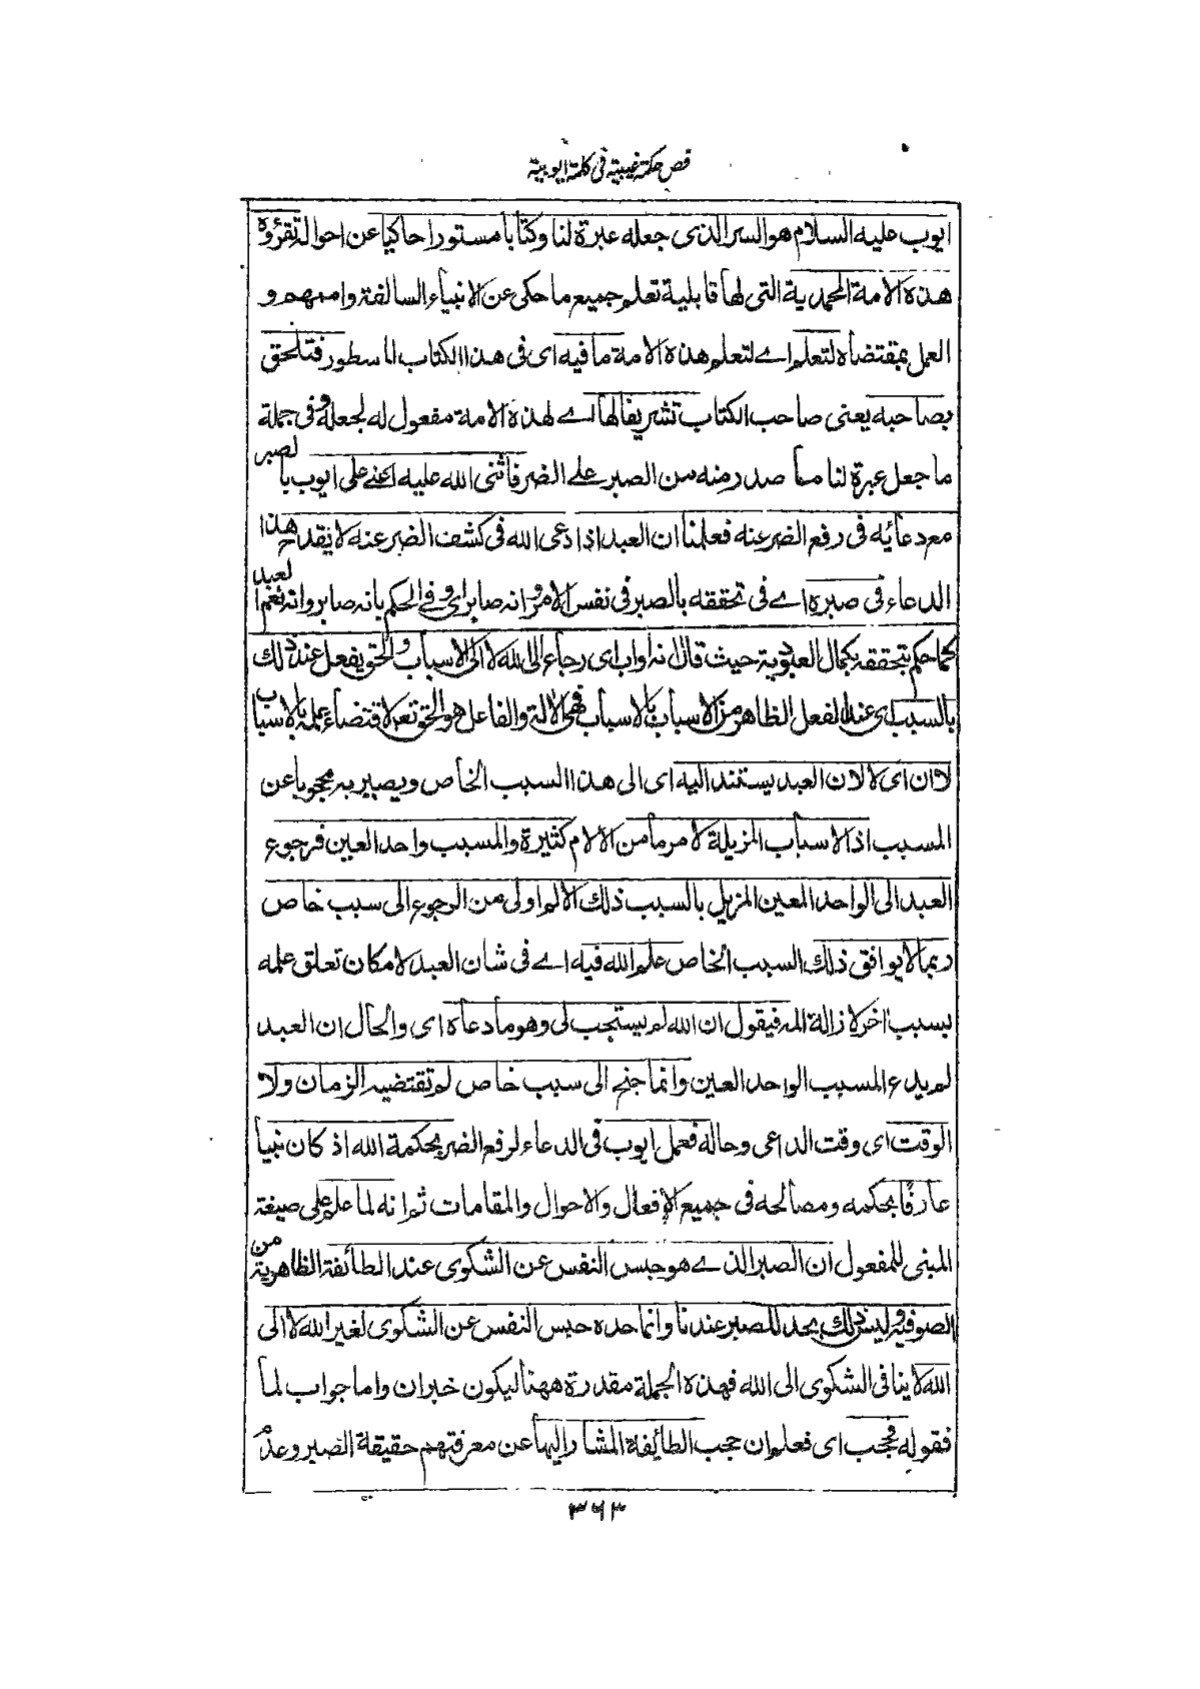 فص حكمة غيبية فى كلمة ايوبية
ايوب عليه السلام هو السر الذى جعله عبرة لنا وكتابا مستورا حاكيا عن احواله تقرؤه
هذه الامة المحمدية التى لها قابلية تعلم جميع ما حكى عن الانبياء السالفة وامهم و
العمل بمقتضاه لتعلم اے لتعلم هذه الامة ما فيه اى فى هذا الكتاب المسطور فتلحق
بصاحبه يعنى صاحب الكتاب تشريفا لها اے لهذه الامة مفعول له لجعله وفى جملة
ما جعل عبرة لنا ما صدر منه من الصبر على الضر فاثنى الله عليه اعنے على ايوب بالصبر
مع دعائه فى رفع الضر عنه فعلمنا ان العبد اذا دعى الله فى كشف الضر عنه لا يقدح هذا
الدعاء فى صبره اے فى تحققه بالصبر فى نفس الامر وانه صابر اى وفے الحكم بانه صابر وانه نعم العبد
كما حكم بتحققه بكمال العبودية حيث قال انه اواب اى رجاع الى الله لا الى الاسباب والحق يفعل عند ذلك
بالسبب اى عند الفعل الظاهر من الاسباب بالاسباب فهى الآلة والفاعل هو الحق تعم لاقتضاء علمه بالاسباب
لا ان اى لا لان العبد يستند اليه اى الى هذا السبب الخاص ويصير به محجوبا عن
المسبب اذ الاسباب المزيلة لامر ما من الآلام كثيرة والمسبب واحد العين فرجوع
العبد الى الواحد المعين المزيل بالسبب ذلك الالم اولى من الرجوع الى سبب خاص
ربما لا يوافق ذلك السبب الخاص علم الله فيه اے فى شان العبد لامكان تعلق علمه
بسبب آخر لازالة المه فيقول ان الله لم يستجب لى وهو ما دعاه اى والحال ان العبد
لم يدع المسبب الواحد العين وانما جنح الى سبب خاص لم تقتضيه الزمان ولا
الوقت اى وقت الداعى وحاله فعمل ايوب فى الدعاء لرفع الضر بحكمة الله اذ كان نبيا
عارفا بحكمه ومصالحه فى جميع الافعال والاحوال والمقامات ثم انه لما علم على صيغة
المبنى للمفعول ان الصبر الذے هو حبس النفس عن الشكوى عند الطائفة الظاهرية من
الصوفية وليس ذلك بحد للصبر عندنا وانما حده حبس النفس عن الشكوى لغير الله لا الى
الله لا ينافى الشكوى الى الله فهذه الجملة مقدرة ههنا ليكون خبر ان واما جواب لما
فقوله فحجب اى فعلم ان حجب الطائفة المشار اليها عن معرفتهم حقيقة الصبر وعدم
۳۶۳